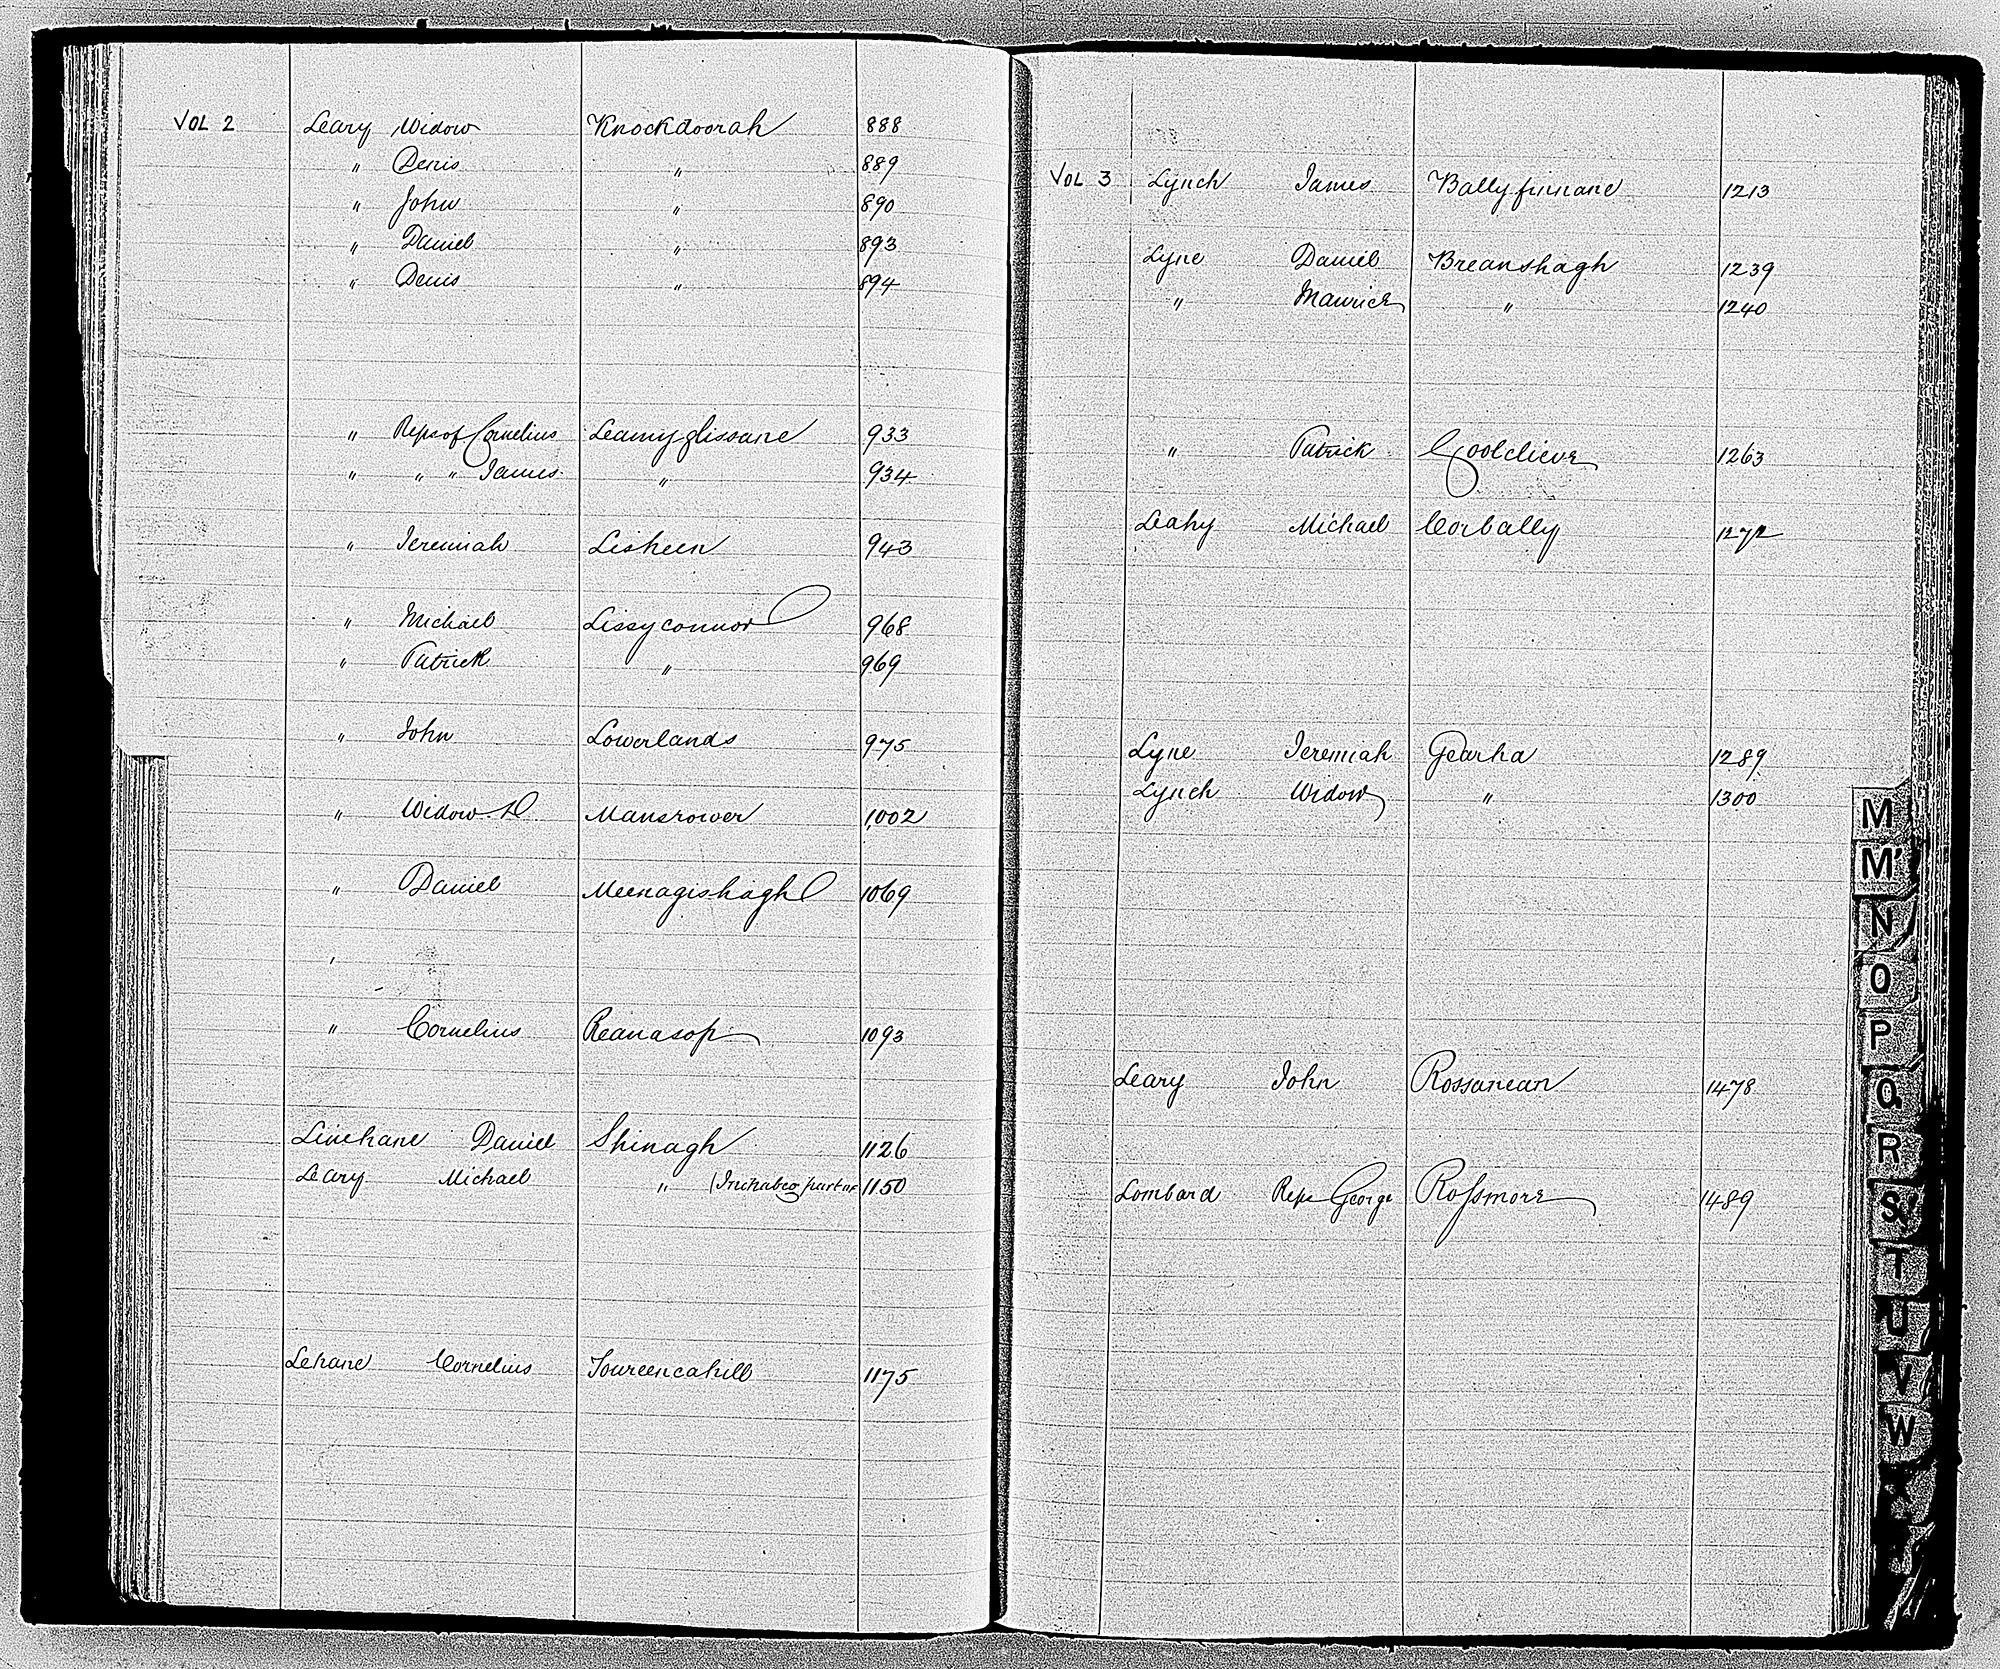 VOL 2 Leary Widow Knockdoorah 888
" Denis " 889
" John " 890
" Daniel " 893
" Denis " 894
" Reps of Cornelius Leamyglissane 933
" " " James " 934
" Jeremiah Lisheen 943
" Michael Lissyconnor 968
" Patrick " 969
" John Lowerlands 975
" Widow D Mausrower 1,002
" Daniel Meenagishagh 1069
" Cornelius Reanasop 1093
Linehane Daniel Shinagh 1126
Leary Michael " (Inchabeg part of 1150
Lehane Cornelius Toureencahill 1175
VOL 3 Lynch James Ballyfinnane 1213
Lyne Daniel Breanshagh 1239
" Maurice " 1240
" Patrick Coolclieve 1263
Leahy Michael Corbally 1272
Lyne Jeremiah Gearha 1289
Lynch Widow " 1300
Leary John Rossanean 1478
Lombard Reps George Rossmore 1489
M
Mc
N
O
P
Q
R
S
T
U
V
W
X